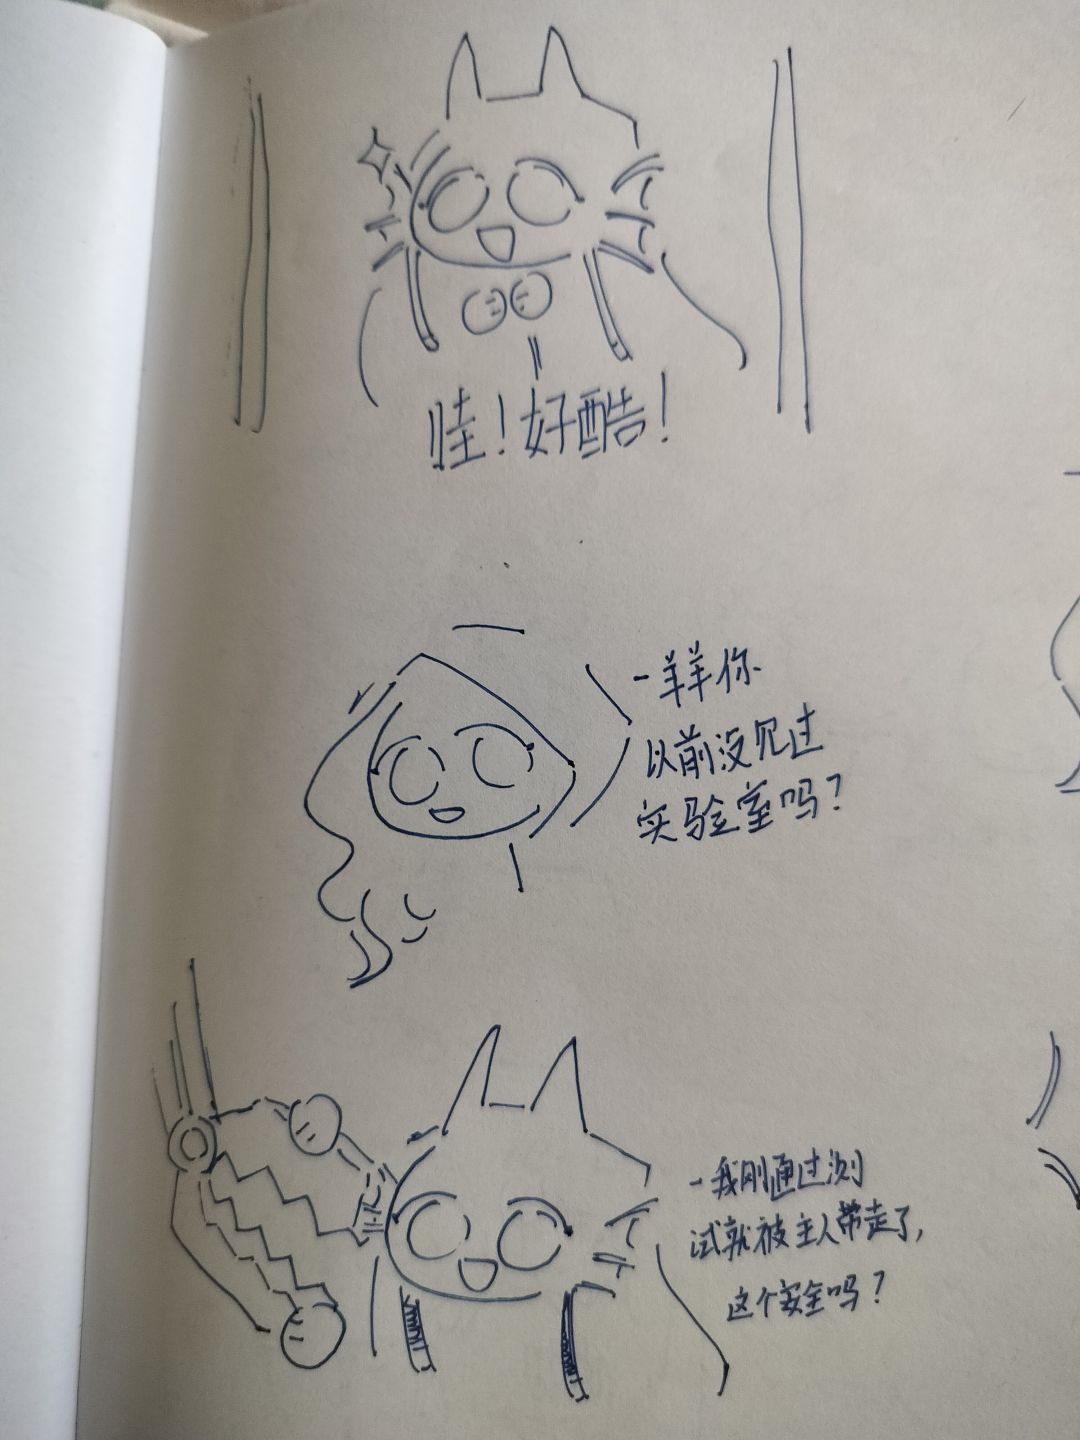 哇！好酷！
-羊羊你
以前没见过
实验室吗？
-我刚通过测
试就被主人带走了，
这个安全吗？